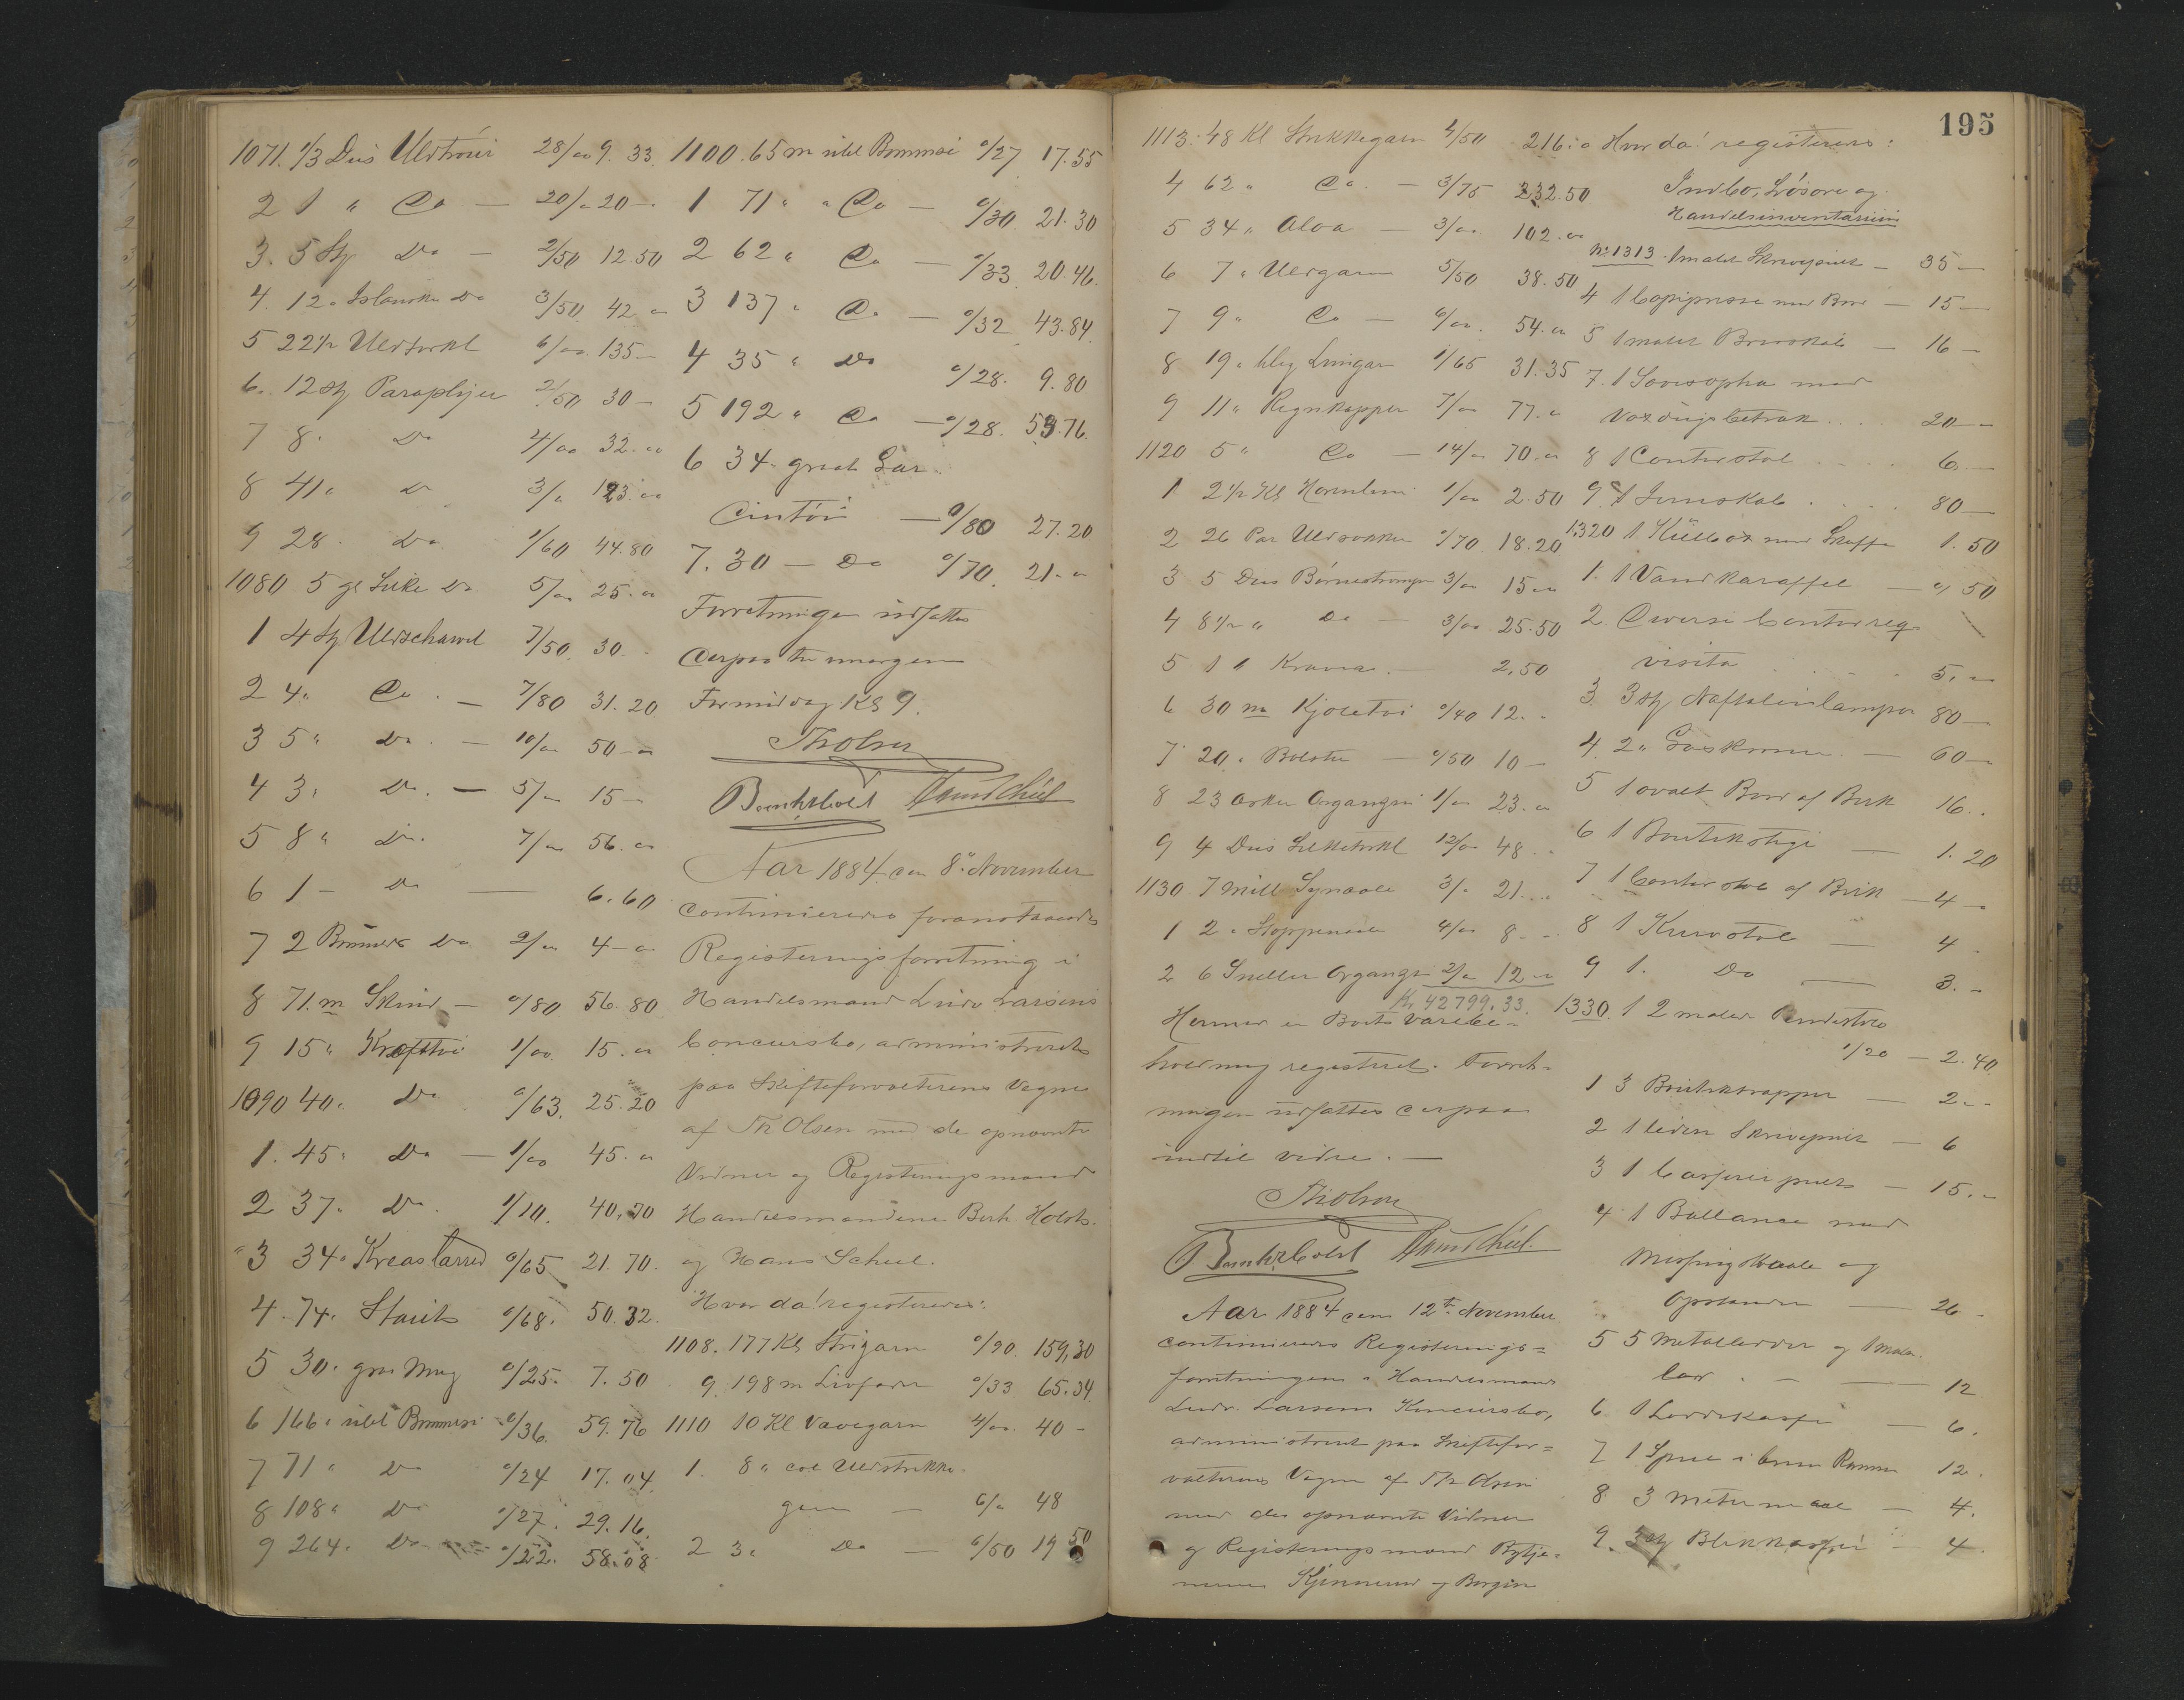 1071. 1/3 Dus Uldtrøier 28/00 9. 33.
2 1 " Do — 20/00 20 —
3. 5 Stk Do — 2/50 12.50
4. 12 " Islandske Do 3/50 42 00
5 22 1/2 Uldtørkl 6/00 135 —
6. 12 Stk Paraplyer 2/50 30 —
7 8 " Do 4/00 32. 00
8 41 " Do 3/00 123. 00
9 28 " Do 1/60 44.80
1080 5 gl Silke Do 5/00 25. 00
1 4 Stk Uldschawl 7/50 30. -
2 4 " Do. — 7/80 31. 20
3 5 " Do. — 10/00 50 - 00
4 3 " Do. — 5/00 15 -
5 8 " Do. 7/00 56. 00
6 1 - Do — 6.60
7 2 Bomulds Do 2/00 4 - 00
8 71. m Skind — 0/80 56. 80
9 15 " 1/00 15. 00
1090 40 " Do 0/63. 25.20
1. 45 " Do — 1/00 45. 00
2 37 " Do. 1/10. 40,70
3 34 " Kreaslærred 0/65 21.70.
4. 74. Stouts 0/68. 50.32.
5 30. gra Mug 0/25. 7.50
6 166 " ubl Bommesi 0/36. 59.76
7 71 " Do 0/24 17.04.
8 108 " Do 0/27. 29.16.
9 264 " Do 0/22. 58.08.
1100. 65 m ubl Bommesi 0/27. 17.55
1 71 " " Do — 0/30. 21.30
2 62 " Do — 0/33. 20.46.
3 137 " Do — 0/32 43.84.
4 35 " Do 0/28. 9.80
5 192 " Do — 0/28. 53.76.
6 34 "
— 0/80 27.20
7. 30 — Do 0/70. 21. 00
Forretningen udsattes
derpaa til imorgen
Formiddag Kl 9.
Th Olsen
Bernh. Holst Hans Schiel
Aar 1884 den 8de November
continueredes foranstaaende
Registeringsforretning i
Handelsmand Ludv Larsens
Concursbo, administreret
paa Skifteforvalterens Vegne
af Th Olsen med de opnævnte
Vidner og Registeringsmænd
Handelsmændene Bernh Holst
og Hans Schiel.
Hvor da! registeredes:
1108. 177 Kl Strigarn 0/90. 159,30
9. 198 m Livfoder 0/33. 65.34.
1110 10 Kl Vævegarn 4/00. 40 -
1. 8 " col Uldstrikke-
garn — 6/00 48
2 3 " Do — 6/50 19 50
195
1113. 48 Kl Strikkegarn 4/50 216. 00
4 62 " Do. — 3/75 232.50
5 34 " Aloa — 3/00. 102. 00
6 7 " Uldgarn 5/50 38.50
7 9 " Do — 6/00. 54. 00
8 19 " bleg Liingarn 1/65 31.35
9 11 " Regnkapper 7/00 77. 00
1120 5 " Do — 14/00 70. 00
1 2 1/2 Kl 1/00 2.50
2 26 Par Uldsokker 0/70. 18.20
3 5 Dus Børnestrømper 3/00 15 00
4 8 1/2 " Do — 3/00 25.50
5 1 " Kraver. — 2.50
6 30 m Kjoletøi 0/40 12. -
7 20 " Bolster — 0/50 10 —
8 23 Æsker Organgarn 1/00 23. 00
9 4 Dus Silketørkl 12/00 48. -
1130 7 Mill Synaale 3/00 21. 00
1 2 " Stoppenaale 4/00 8. -
2 6 Sneller Organgrn 2/00 12. 00
Kr 42799.33.
Hermed er Boets Varebe-
holdning registeret. Forret-
ningen udsattes derpaa
indtil videre. —
Th Olsen
Bernh. Holst Hans Schiel.
Aar 1884 den 12te November
continueredes Registerings-
forretningen i Handelsmand
Ludv. Larsens Koncursbo,
administreret paa Skiftefor-
valterens Vegne af Th Olsen
med des opnævnte Vidner
og Registeringsmænd Bytje-
nerne Kjennerud og Borgen
Hvor da! registeredes:
Indbo, Løsøre og
Handelsinventarium
No 1313. 1 malet Skrivepult — 35 —
4 1 Copipresse med Bord — 15 —
5 1 malet Brevskab — 16 —
7. 1 Sovesopha med
Voxdugsbetræk . . . 20 —
8 1 Contorstol . . . . 6. —
9. 1 Jernskab . . . . 80 —
1320 1 Kulbox med Skuffe 1. 50
1. 1 Vandkaraffel — 0, 50
2. Diverse Contorreq-
visita . . . . 5. —
3. 3 Stk Naftalinlamper 80 —
4. 2 " Gaskroner. — 60 —
5 1 ovalt Bord af Birk 16. .
6 1 Boutikstige — 1. 20
7 1 Contorstol af Birk — 4 —
8 1 Kurvstol — 4 -
9 1. Do — 3. -
1330. 1 2 malede
1/20 — 2.40.
1 3 Boutiktrapper — 2. -
2 1 liden Skrivepult — 6
3 1 Casserer pult — 15. -
4 1 Ballance med
Messing Skaale og
Opstander — 26 -
5 5 Metallodder og 1
lod . - — 12
6 1 Loddekasse — 6.
7 1 Speil i brun Ramme 12.
8. 3 Metermaal — 4.
9. 3 Stk Blikkasser — 4.